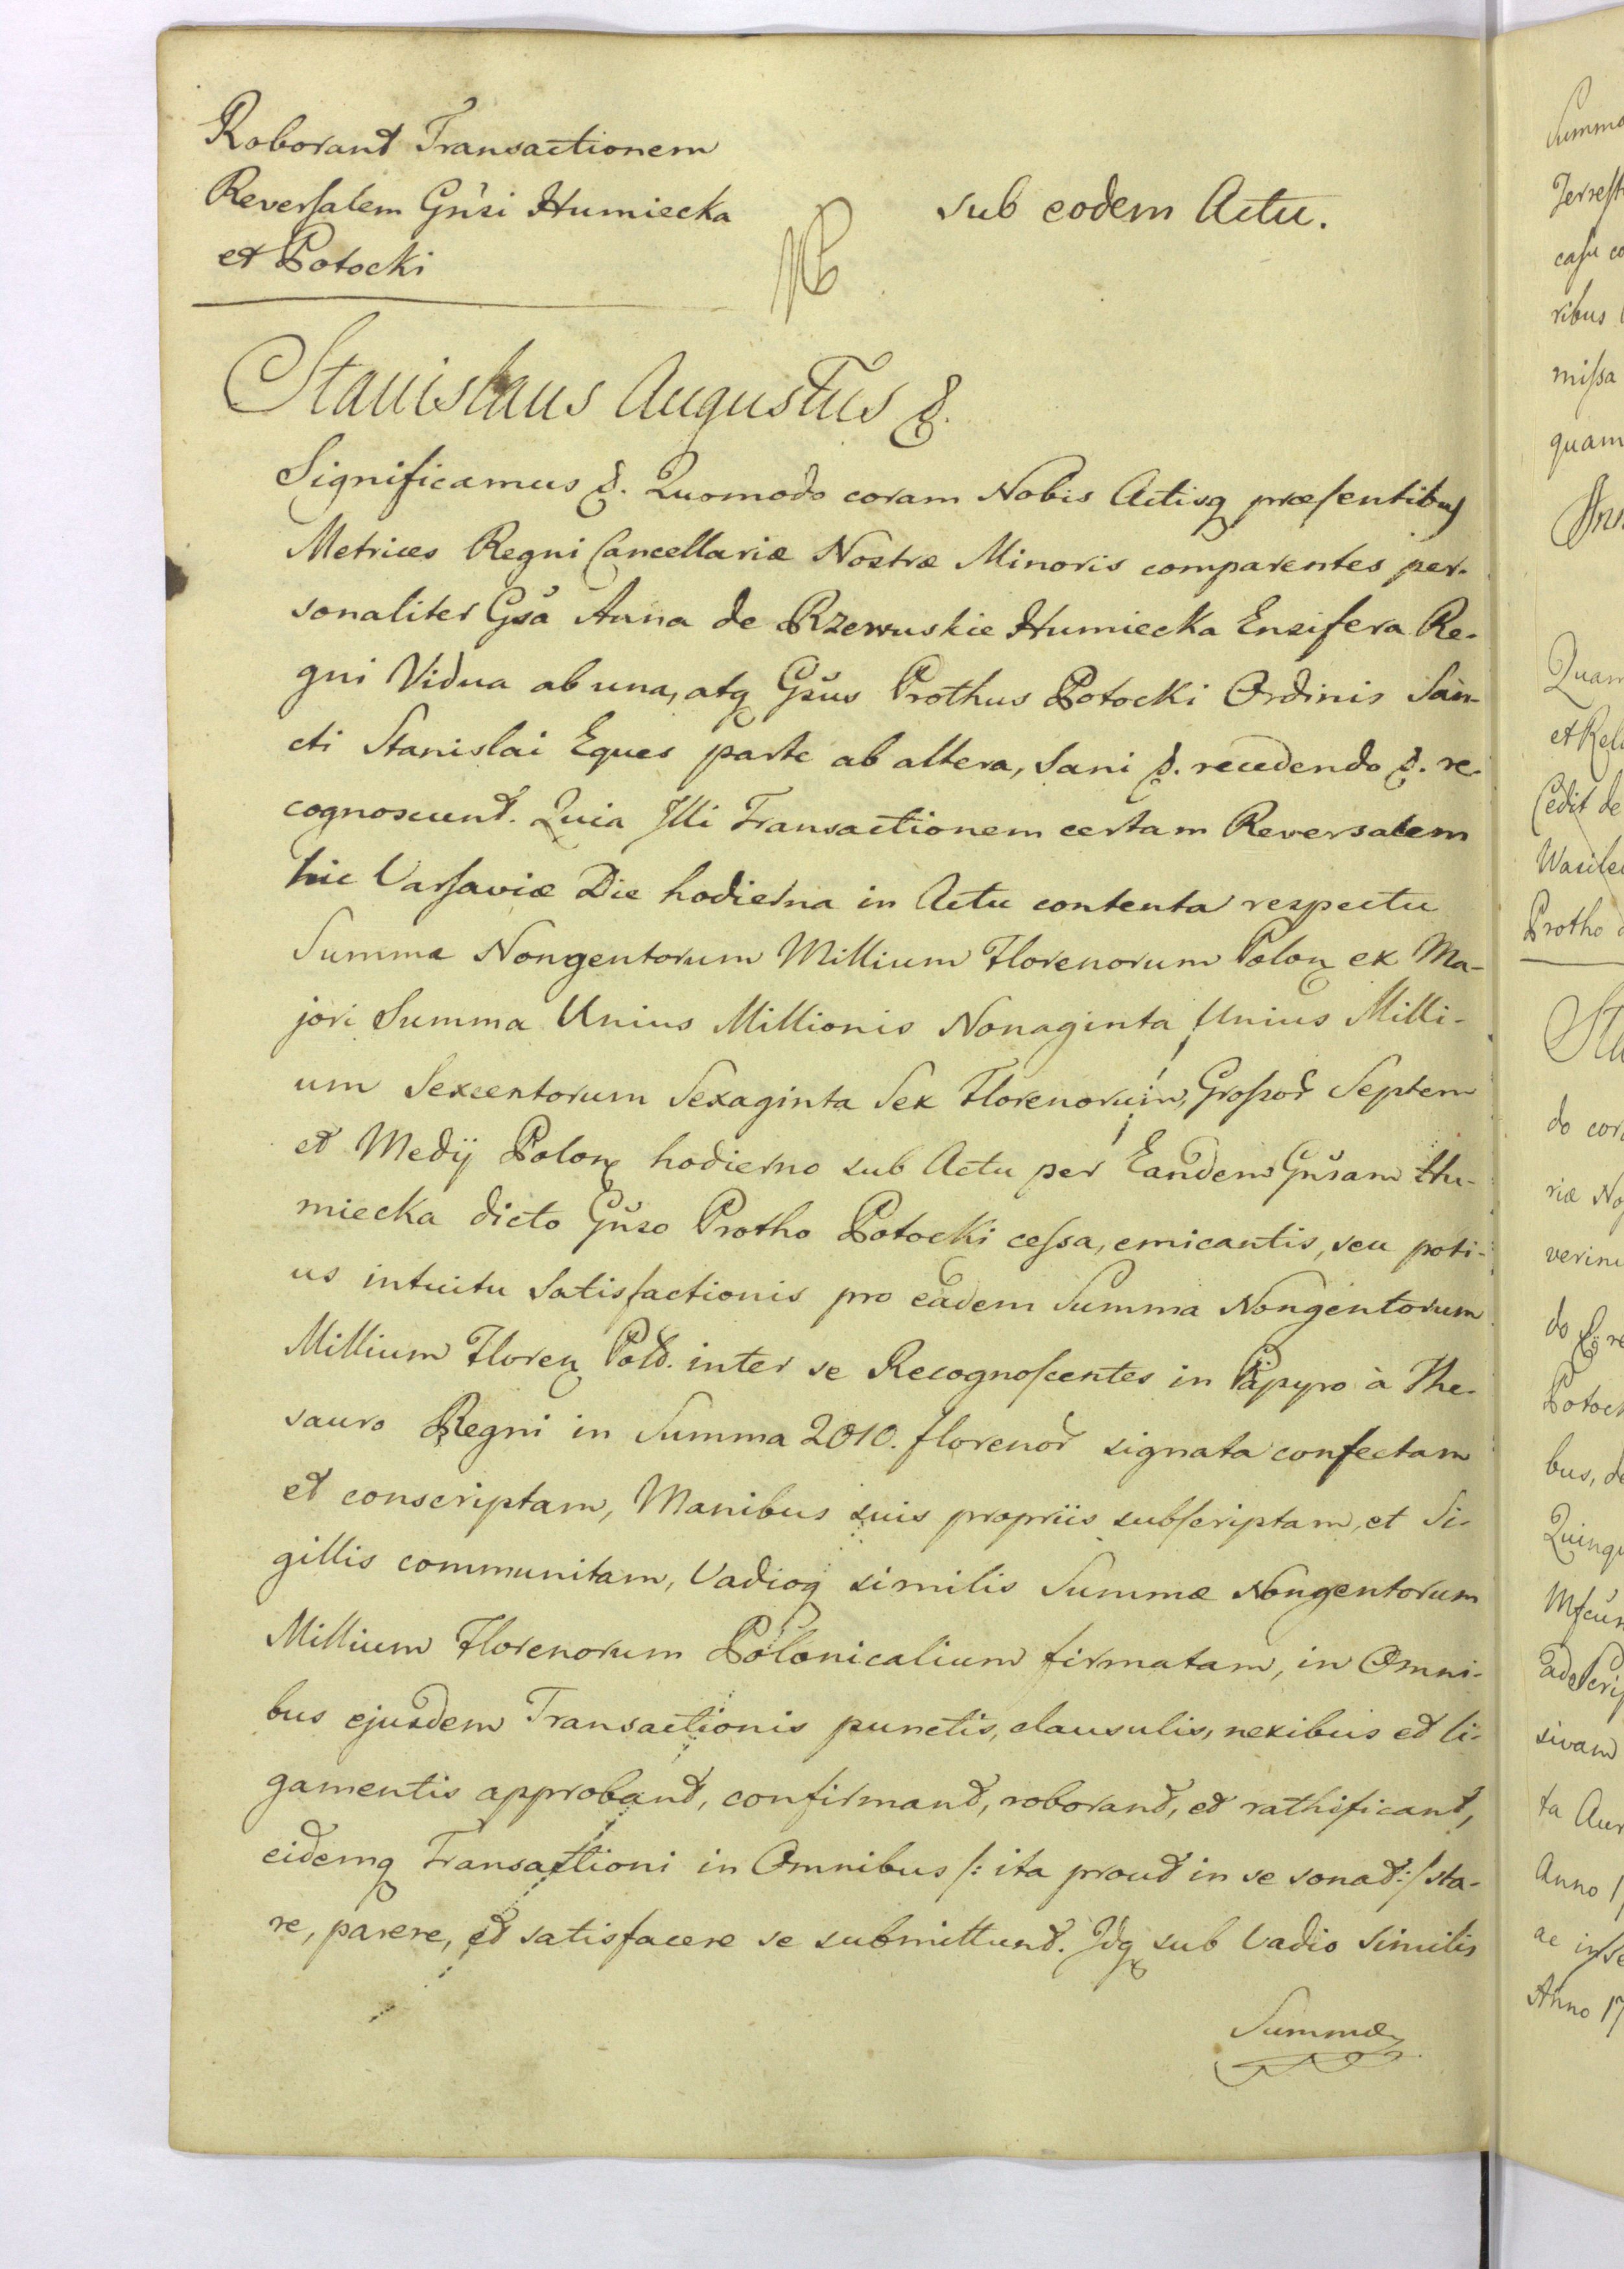 Roborant Transactionem
Reversalem Gnsi Humiecka
et Potocki
sub eodem Actu.
Stanislaus Augustus &.
Significamus &. Quomodo coram Nobis Actisq præsentibus
Metrices Regni Cancellariæ Nostræ Minoris comparentes per-
sonaliter Gsa Anna de Rzewuskie Humiecka Ensifera Re-
gni Vidua ab una, atq Gsus Prothus Potocki Ordinis San-
cti Stanislai Eques parte ab altera, sani &. recedendo &. re-
cognoscunt. Quia Illi Transactionem certam Reversalem
hic Varsaviæ Die hodierna in Actu contenta respectu
Summæ Nongentorum Millium Florenorum Polon ex Ma-
jori Summa Unius Millionis Nonaginta Unius Milli-
um Sexcentorum Sexaginta Sex Florenorum, Grossor Septem
et Medij Polon hodierno sub Actu per Eandem Gnsam Hu-
miecka dicto Gnso Protho Potocki cessa, emicantis, seu poti-
us intuitu Satisfactionis pro eadem Summa Nongentorum
Millium Floren Pold. inter se Recognoscentes in Papyro à The-
sauro Regni in Summa 2010. florenor signata confectam
et conscriptam, Manibus suis propriis subscriptam, et Si-
gillis communitam, Vadioq similis Summæ Nongentorum
Millium Florenorum Polonicalium firmatam, in Omni-
bus ejusdem Transactionis punctis, clausulis, nexibus et li-
gamentis approbant, confirmant, roborant, et rathificant,
eidemq Transactioni in Omnibus /: ita prout in se sonat :/ sta-
re, parere, et satisfacere se submittunt. Idq sub Vadio Similis
Summæ